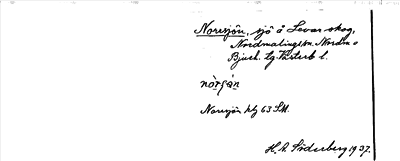 Norrsjön, sjö å Levar skog,
Nordmalings sn. Nordm o
Bjurh. tg Västerb l.
Norrsjön
H.A. Söderberg 1937.